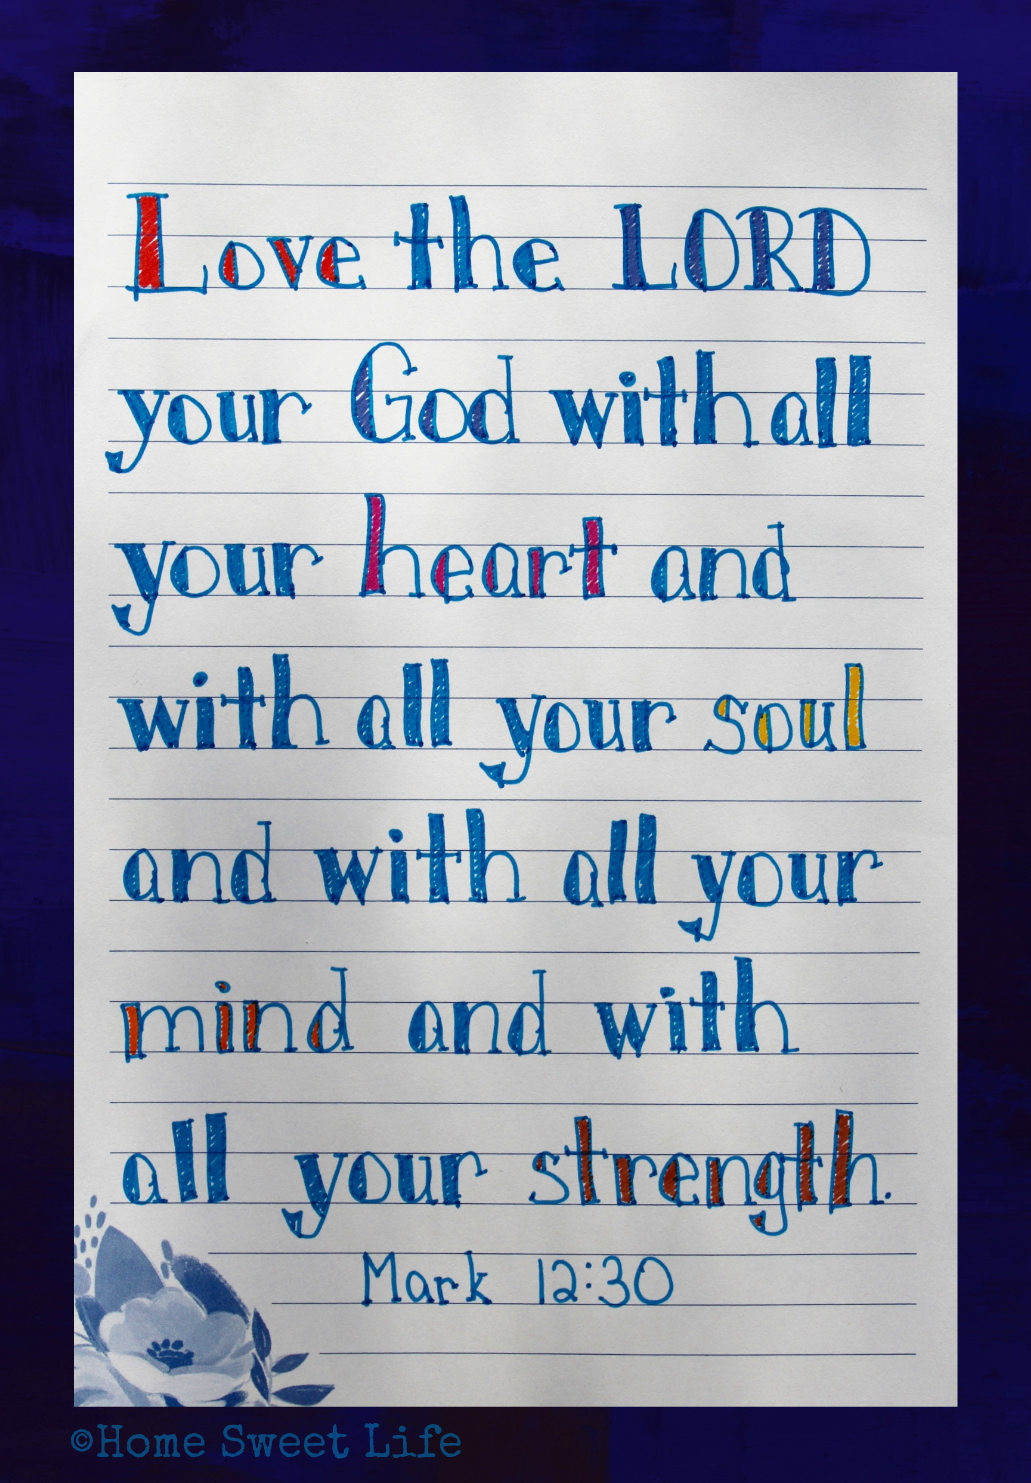 Love the LORD
your God with all
your heart and
with all your soul
and with all your
mind and with
all your strength.
Mark 12:30
©Home Sweet Life